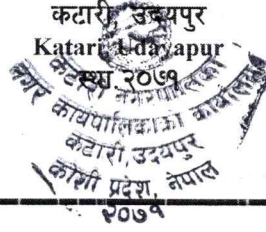 कटारी, उदयपुर
Katari, Udayapur
स्था २०७१
कटारी नगरपालिका
नगर कार्यपालिकाको कार्यालय
कटारी, उदयपुर
कोशी प्रदेश, नेपाल
२०७१